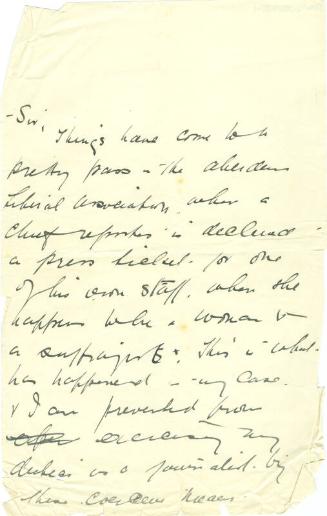 - Sir,
Things have come to a
pretty pass in the Aberdeen
Liberal Association, when a
chief reporter is declined
a press ticket for one
of his own staff, when she
happens to be a woman &
a suffragist. This is what
has happened in my case.
& I am prevented from
exercising my
duties as a journalist by
these